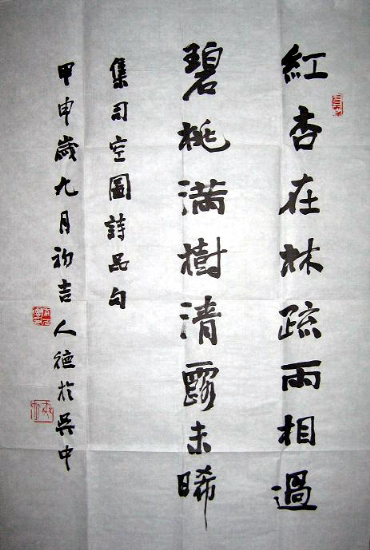 紅杏在林疏雨相過
碧桃滿樹清露未晞
集司空圖詩品句
甲申歲九月初吉人德於吳中